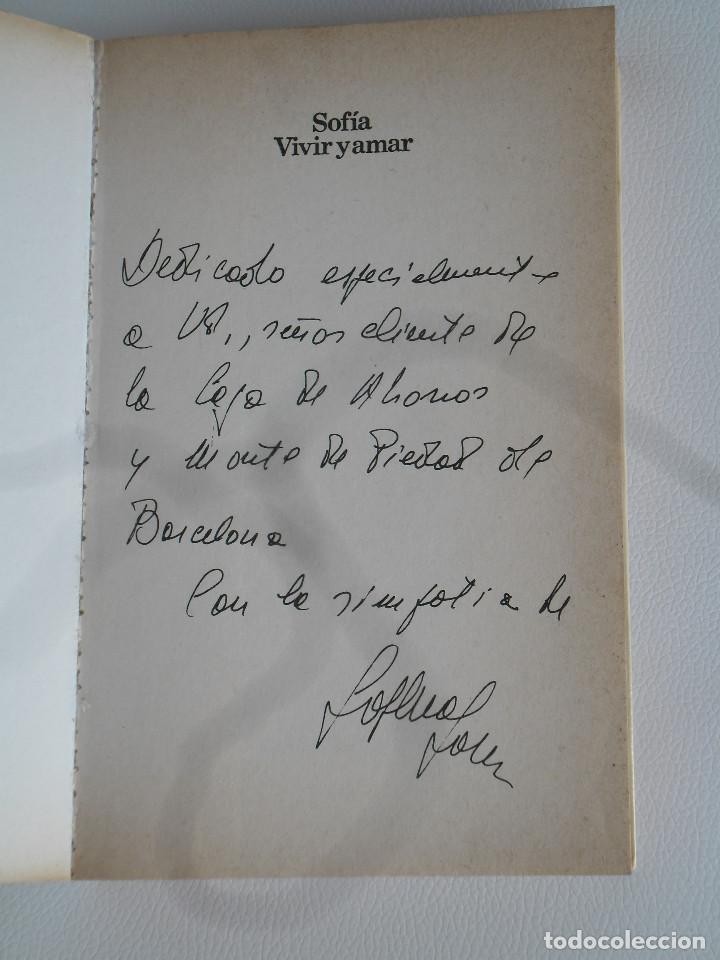 Sofía
Vivir y amar
Dedicado especialmente
a Vd., señor cliente de
la Caja de Ahorros
y Monte de Piedad de
Barcelona
Con la simpatia de
Sophia
Loren
todocoleccion
todocoleccion.net